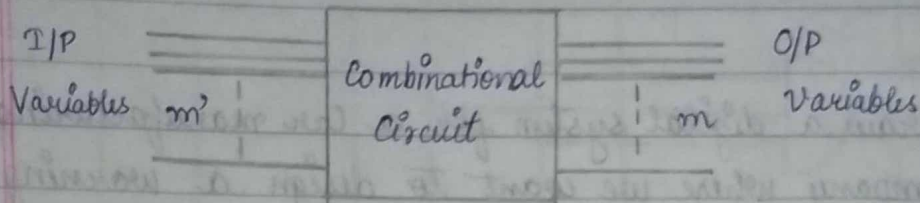 I/P
Variables m'
Combinational
Circuit
m
O/P
Variables